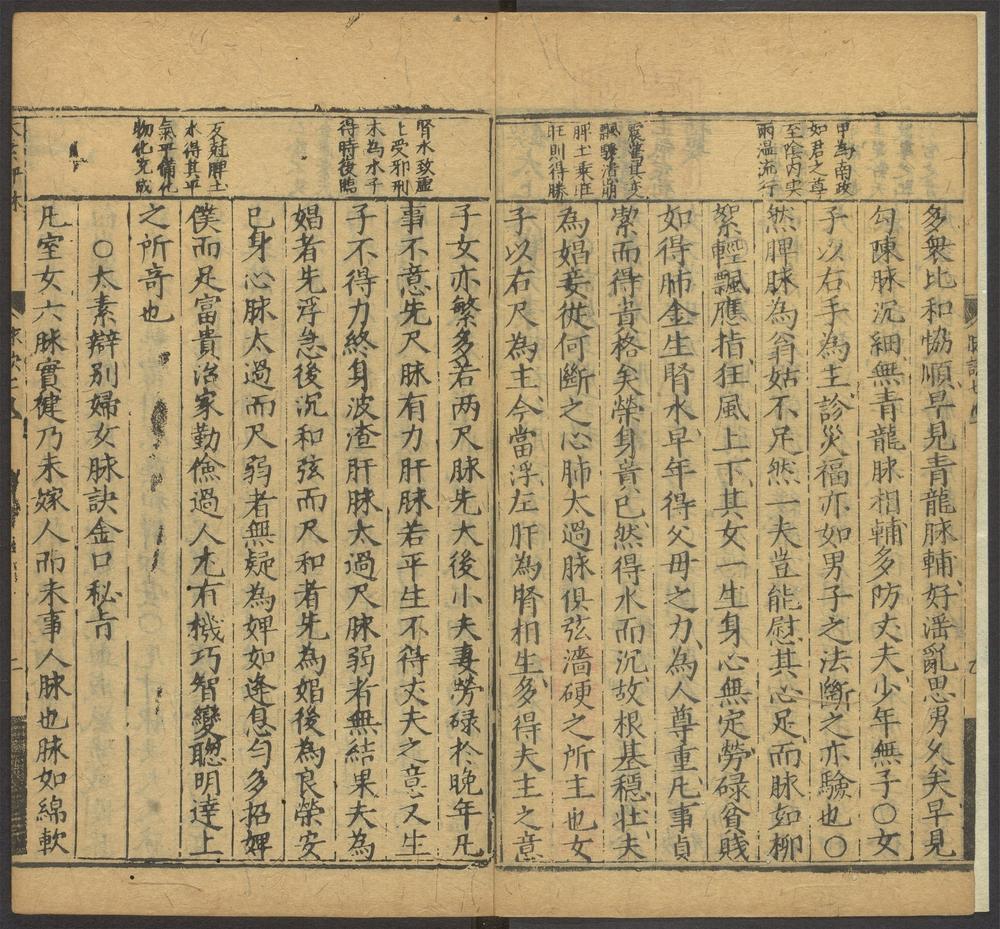 多衆比和恊順早見青龍脉輔好滛亂思男久矣早見
勾陳脉沉細無青龍脉相輔多防丈夫少年無子〇女
子以右手為主診災福亦如男子之法斷之亦驗也〇
然脾脉為翁姑不足然一夫豈能慰其心足而脉如柳
絮輕飄應指狂風上下其女一生身心無定勞碌貧賤
如得肺金生腎水早年得父母之力為人尊重凡事貞
潔而得貴格矣榮身貴已然得水而沉故根基穩壯夫
為娼妾從何斷之心肺太過脉俱弦濇硬之所主也女
子以右尺為主今當浮左肝為腎相生多得夫主之意
甲為南政
如君之尊
至陰内実
兩温流行
脾土乗旺
旺則得勝
子女亦繁多若两尺脉先大後小夫妻勞碌於晚年凡
事不意先尺脉有力肝脉若平生不得丈夫之意又生
子不得力終身波渣肝脉太過尺脉弱者無結果夫為
娼者先浮急後沉和弦而尺和者先為娼後為良榮安
已身心脉太過而尺弱者無疑為婢如逢息匀多招婢
僕而足富貴治家勤儉過人尤有機巧智變聰明達上
之所竒也
〇太素辯别婦女脉訣金口秘旨
凡室女六脉實健乃未嫁人而未事人脉也脉如綿軟
腎水致虛
上受邪刑
木為水子
得時後臨
反尅脾土
水得其平
氣平備化
物化充成